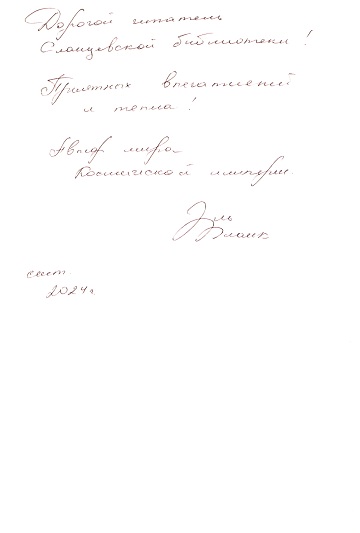 Дорогой читатель
Сланцевской библиотеки!
Приятных впечатлений
и тепла!
Автор мира
Космической империи.
Эль
Бланк
сент.
2024г